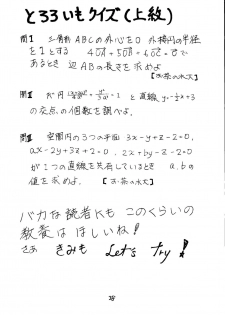 とろろいもクイズ(上級)
問1 三角形ABCの外心をO 外接円の半径
を1とする 4OA+5OB+6OC=0で
あるとき 辺ABの長さを求めよ
【お茶の水大】
と直線 y=-1/2x+3
の交点の個数を調べよ.
問3 空間内の3つの平面 3x-y+z-2=0,
ax-2y+3z+2=0, 2x+by-z-2=0
が1つの直線を共有しているとき a,bの
値を求めよ. 【お茶の水大】
バカな読者にも このくらいの
教養は ほしいね!
さあ きみも Let's try!